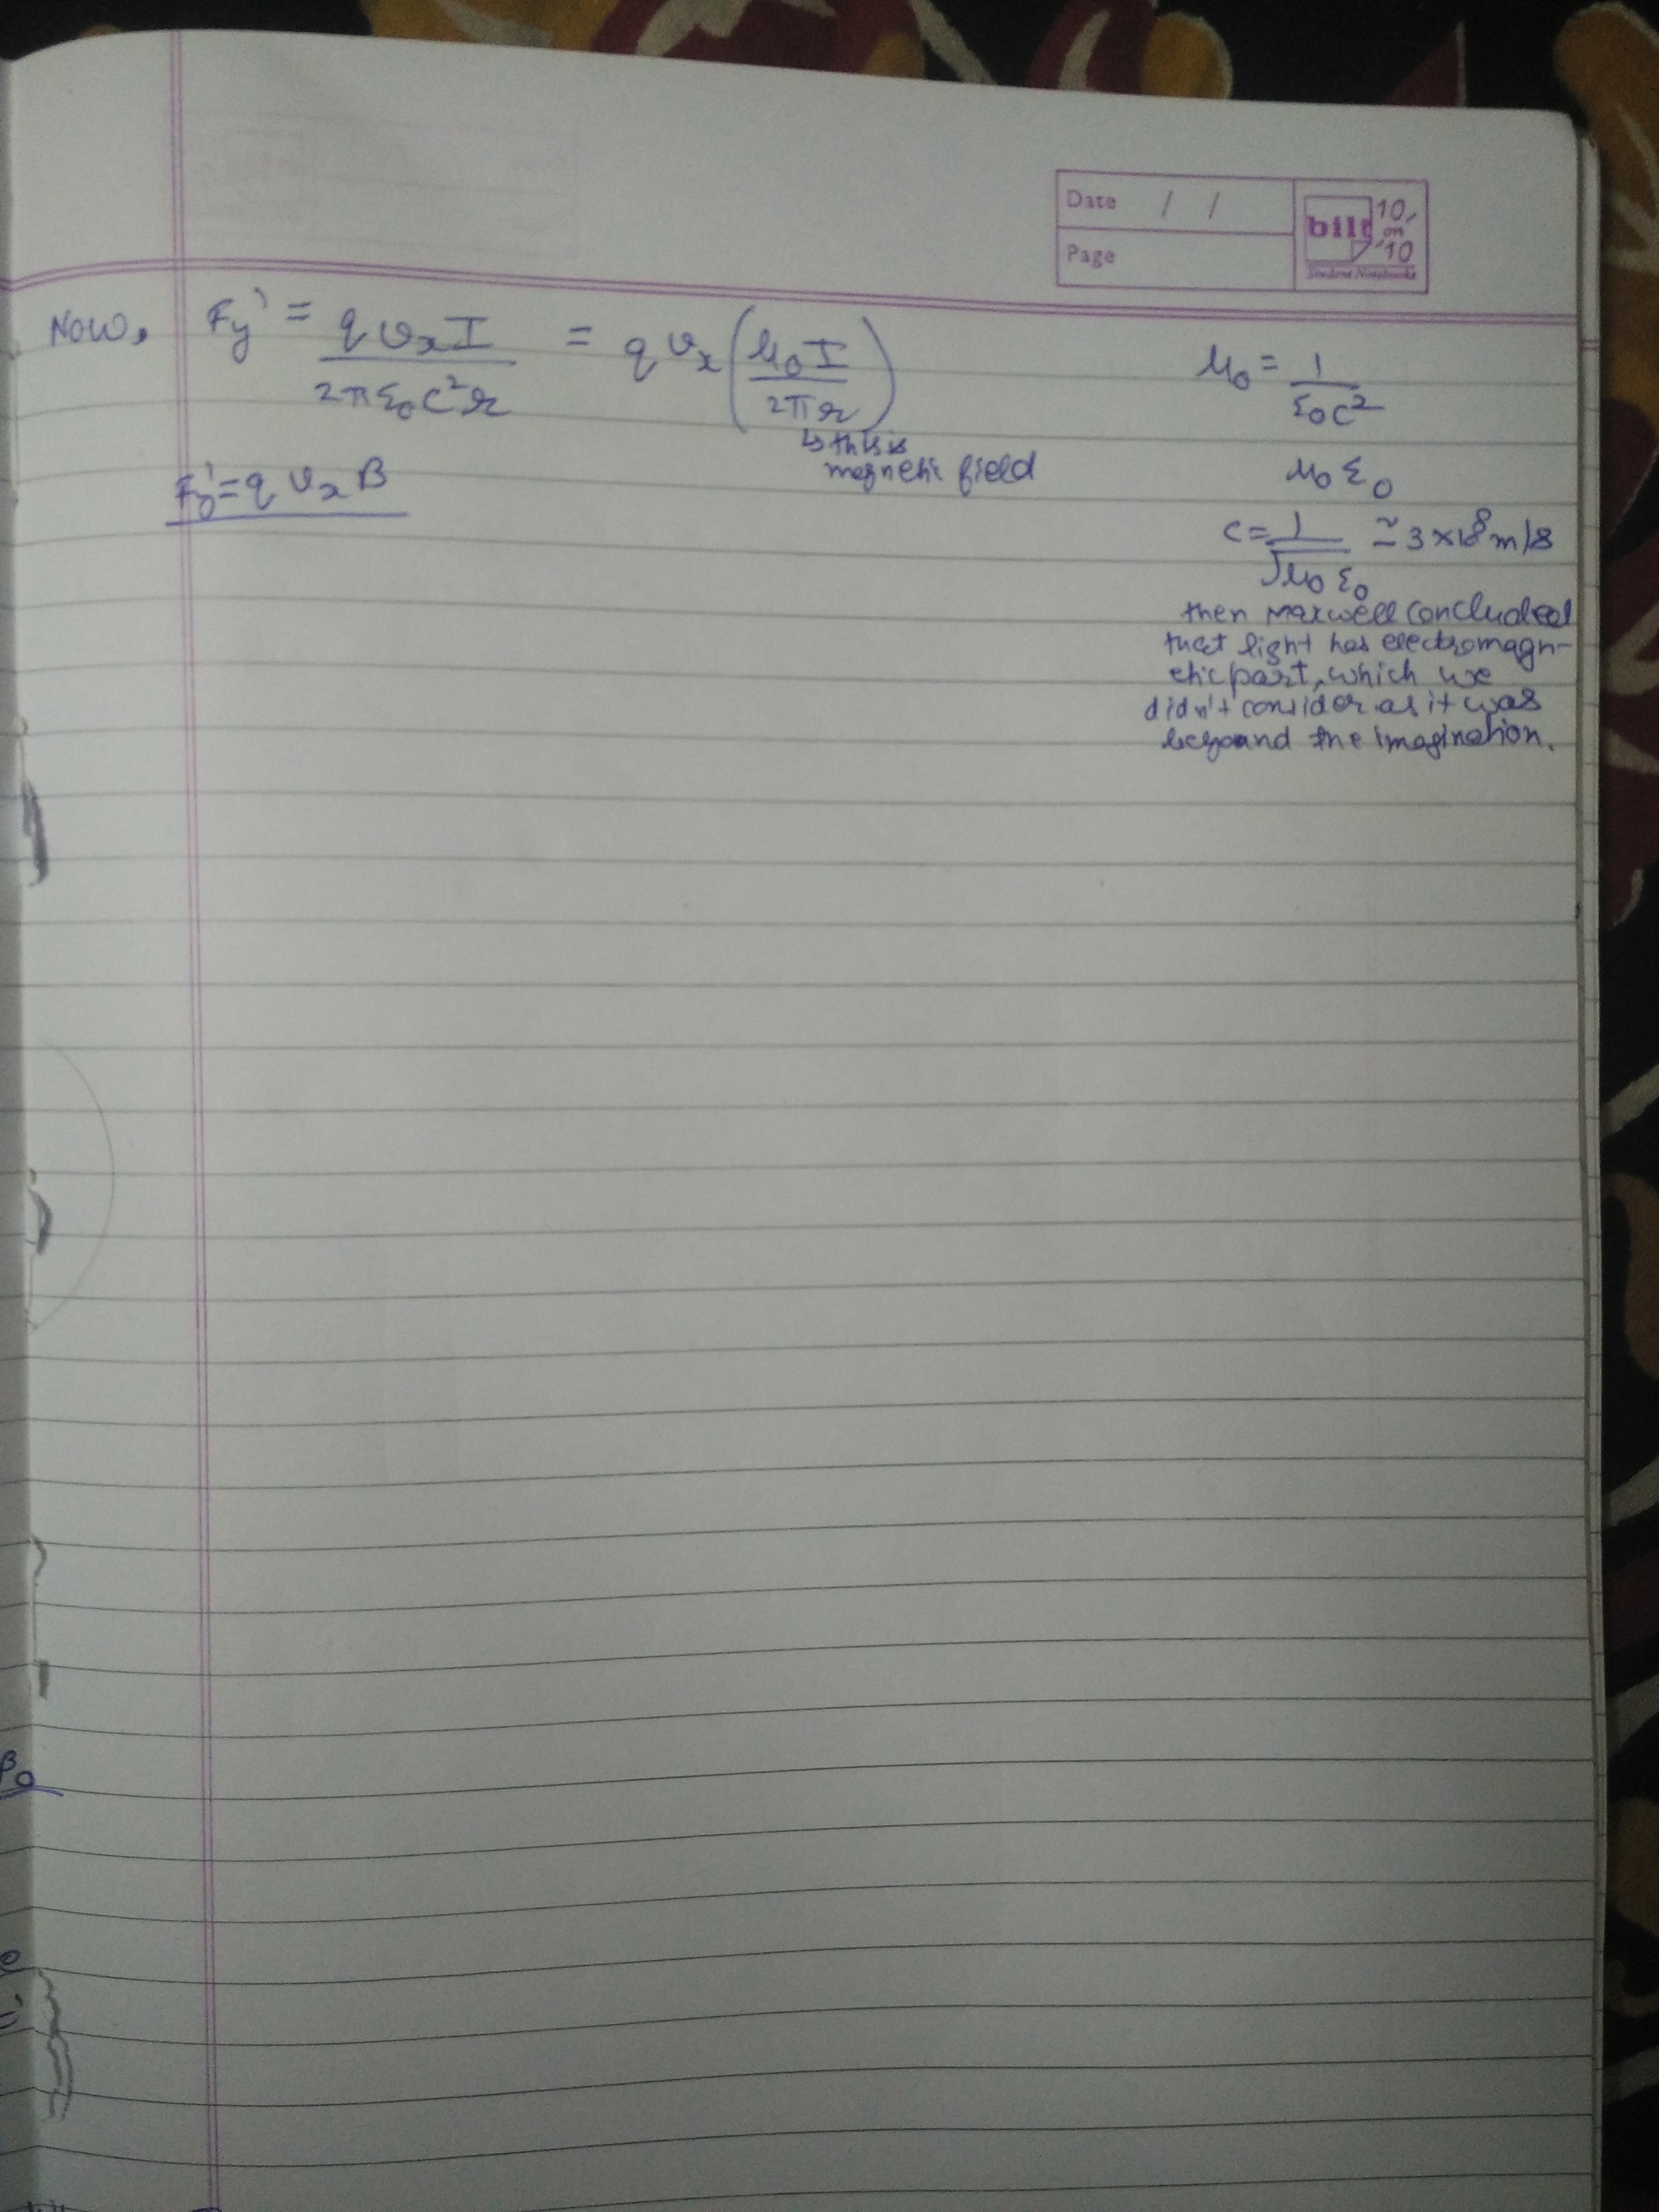 Date / /
Page
bilt 10 on 10
Student Notebooks
Now, Fy' = q vx I / 2πε0c²r = q vx (μ0 I / 2πr)
↳ this is
magnetic field
Fy' = q vx B
μ0 = 1 / ε0c²
μ0 ε0
c = 1 / √μ0 ε0 ≃ 3×10⁸ m/s
then Maxwell concluded
that light has electromagn-
etic part, which we
didn't consider as it was
beyound the imagination.